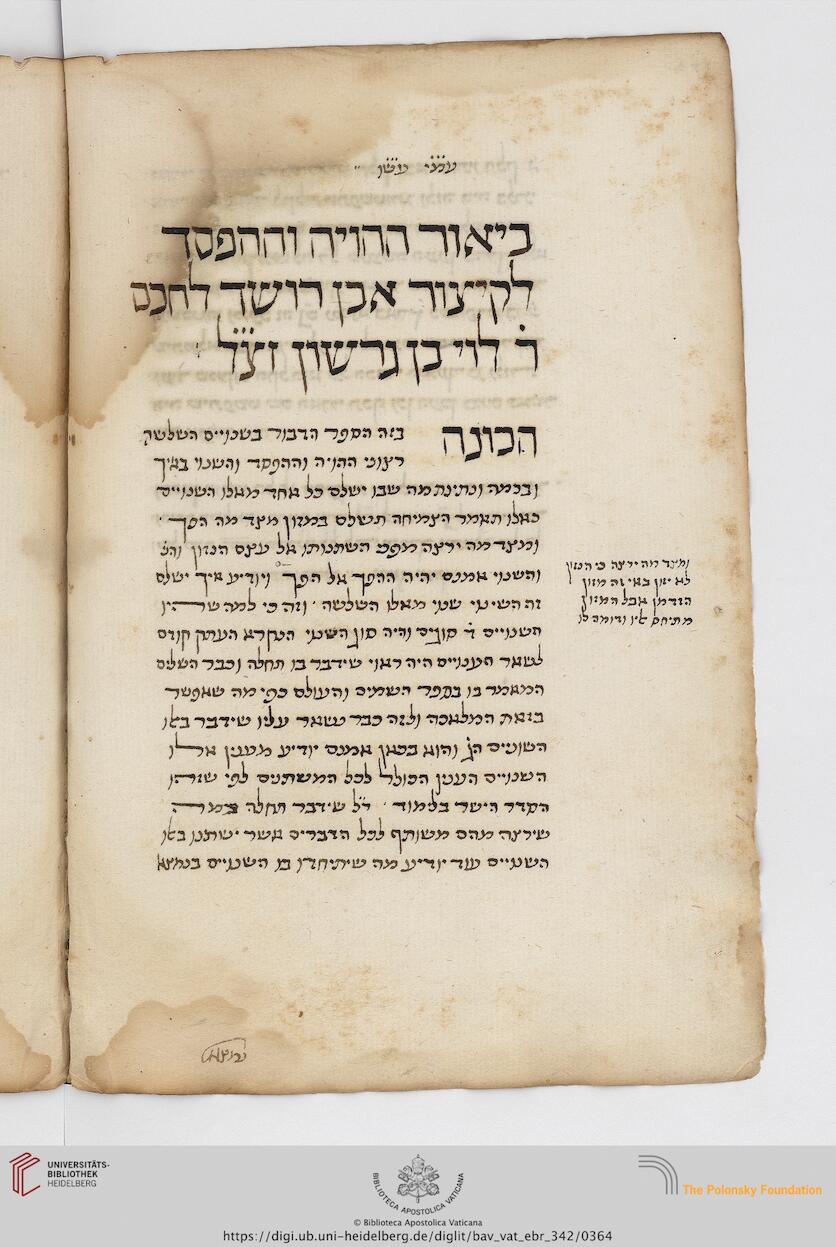 עמ"י עש"ו
ביאור ההויה וההפסד
לקיצור אבן רושד לחכם
ר' לוי בן גרשון זצ"ל :
הכונה בזה הספר הדבור בשנויים השלשה
רצוני ההויה וההפסד והשנוי באיך
ובכמה ונתינת מה שבו ישלם כל אחד מאלו השנויים
כאלו תאמר הצמיחה תשלם במזון מצד מה הפך
ומצד מה ירצה מפני השתנותו אל עצם הנזון
והשנוי אמנם יהיה ההפך אל הפך ויודיע איך ישלם
זה השינוי שנוי מאלו השלשה וזה כי למה שהיו
השנויים ד' סוגים והיה סוג השנוי הנקרא העתק קודם
לשאר השנויים היה ראוי שידבר בו תחלה וכבר השלים
המאמר בו בספר השמים והעולם כפי מה שאפשר
בזאת המלאכה ולזה כבר נשאר עליו שידבר באלו
השנויים הג' והוא בכאן אמנם יודיע מענין אלו
השנויים הענין הכולל לכל המשתנים לפי שזהו
הסדר הישר בלמוד ר"ל שידבר תחלה במה
שירצה מהם משותף לכל הדברים אשר ישתנו באלו
השנויים עוד יודיע מה שיתיחדו בו השנויים בנמצא
ומצד מה ירצה כי הנזון
לא יזון באי זה מזון
הזדמן אבל המזון
מתיחס אליו ודומה לו
UNIVERSITÄTS-
BIBLIOTHEK
HEIDELBERG
BIBLIOTECA APOSTOLICA VATICANA
The Polonsky Foundation
© Biblioteca Apostolica Vaticana
https://digi.ub.uni-heidelberg.de/diglit/bav_vat_ebr_342/0364